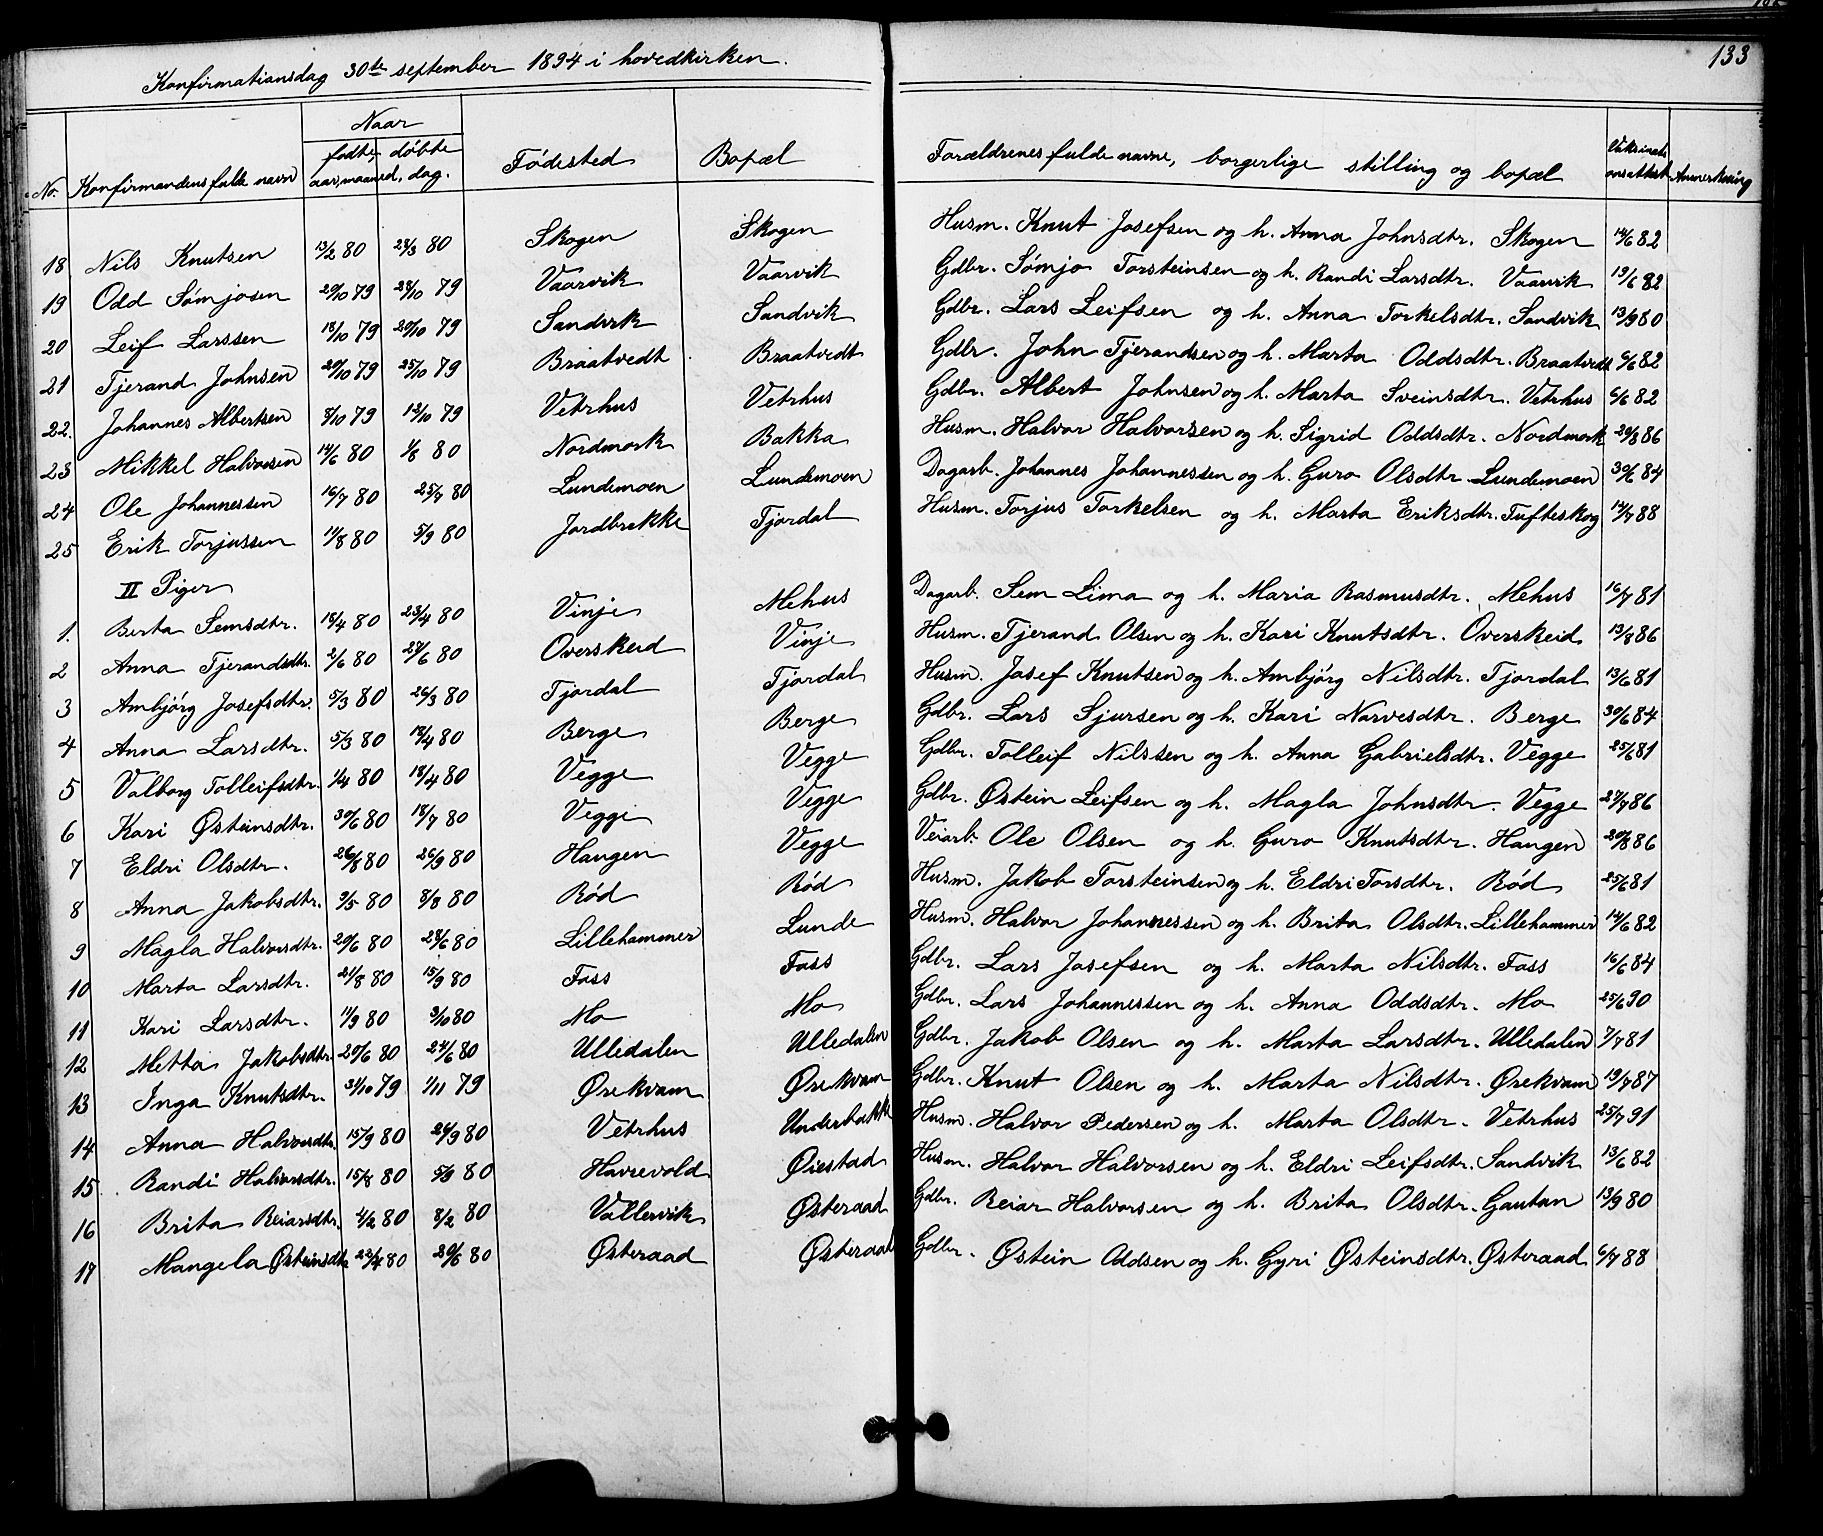 133
Konfirmationsdag 30te september 1894 i hovedkirken.
No. Konfirmandens fulde navn Naar fødte, døbte aar, maaned, dag. Fødested Bopæl Forældrenes fulde navne, borgerlige stilling og bopæl Vaksinationsattest Anmerkning
18 Nils Knutsen 13/2 80 28/3 80 Skogen Skogen Husm. Knut Josefsen og h. Anna Johnsdtr. Skogen 14/6 82
19 Odd Sømjosen 20/10 79 28/10 79 Vaarvik Vaarvik Gdbr. Sømjo Torsteinsen og h. Randi Larsdtr. Vaarvik 19/6 82
20 Leif Larssen 18/10 79 20/10 79 Sandvik Sandvik Gdbr. Lars Leifsen og h. Anna Torkelsdtr. Sandvik 13/9 80
21 Tjerand Johnsen 20/10 79 25/10 79 Braatvedt Braatvedt Gdbr. John Tjerandsen og h. Marta Oddsdtr. Braatvedt 6/6 82
22. Johannes Albertsen 8/10 79 12/10 79 Vetrhus Vetrhus Gdbr. Albert Johnsen og h. Marta Sveinsdtr. Vetrhus 6/6 82
23 Mikkel Halvorsen 14/6 80 1/8 80 Nordmork Bakka Husm. Halvor Halvorsen og h. Sigrid Oddsdtr. Nordmork 20/8 86
24 Ole Johannessen 16/7 80 25/7 80 Lundemoen Lundemoen Dagarb. Johannes Johannessen og h. Guro Olsdtr Lundemoen 30/6 84
25 Erik Torjussen 11/8 80 5/9 80 Jordbrekke Tjordal Husm. Torjus Torkelsen og h. Marta Eriksdtr. Tufteskog 14/7 88
II Piger
1. Berta Semsdtr. 18/4 80 23/4 80 Vinje Mehus Dagarb. Sem Lima og h. Maria Rasmusdtr. Mehus 16/7 81
2 Anna Tjerandsdtr. 2/6 80 27/6 80 Overskeid Vinje Husm. Tjerand Olsen og h. Kari Knutsdtr. Overskeid 13/8 86
3 Ambjórg Josefsdtr. 5/3 80 26/3 80 Tjordal Tjordal Husm. Josef Knutsen og h. Ambjórg Nilsdtr. Tjordal 13/6 81
4 Anna Larsdtr. 5/3 80 18/4 80 Berge Berge Gdbr. Lars Sjursen og h. Kari Narvesdtr. Berge 30/6 84
5 Valborg Tolleifsdtr. 1/4 80 18/4 80 Vegge Vegge Gdbr. Tolleif Nilssen og h. Anna Gabrielsdtr. Vegge 25/6 81
6 Kari Østeinsdtr. 30/6 80 18/7 80 Vegge Vegge Gdbr. Østein Leifsen og h. Magla Johnsdtr. Vegge 27/7 86
7 Eldri Olsdtr. 26/8 80 26/9 80 Haugen Vegge Veiarb. Ole Olsen og h. Guro Knutsdtr. Haugen 20/8 86
8 Anna Jakobsdtr. 9/5 80 8/8 80 Rød Rød Husm. Jakob Torsteinsen og h. Eldri Torsdtr. Rød 25/6 81
9 Magla Halvorsdtr. 20/6 80 28/6 80 Lillehammer Lunde Husm. Halvor Johannessen og h. Brita Olsdtr. Lillehammer 14/6 82
10 Marta Larsdtr. 21/8 80 15/9 80 Foss Foss Gdbr. Lars Josefsen og h. Marta Nilsdtr. Foss 16/6 84
11 Kari Larsdtr. 11/9 80 3/10 80 Mo Mo Gdbr. Lars Johannessen og h. Anna Oddsdtr. Mo 25/6 90
12 Metta Jakobsdtr. 20/6 80 24/6 80 Ulledalen Ulledalen Gdbr. Jakob Olsen og h. Marta Larsdtr. Ulledalen 7/7 81
13 Inga Knutsdtr. 31/10 79 1/11 79 Ørekvam Ørekvam Gdbr. Knut Olsen og h. Marta Nilsdtr. Ørekvam 19/7 87
14 Anna Halvorsdtr. 15/9 80 26/9 80 Vetrhus Underbakk Husm. Halvor Pedersen og h. Marta Olsdtr. Vetrhus 25/7 91
15 Randi Halvorsdtr. 15/8 80 5/9 80 Havrevold Øiestad Husm. Halvor Halvorsen og h. Eldri Leifsdtr. Sandvik 13/6 82
16 Brita Reiarsdtr. 4/2 80 8/2 80 Vallervik Østeraad Gdbr. Reiar Halvorsen og h. Brita Olsdtr. Gautun 13/9 80
17 Mangela Østeinsdtr 22/4 80 20/6 80 Østeraad Østeraad Gdbr. Østein Oddsen og h. Gyri Østeinsdtr. Østeraad 6/7 88